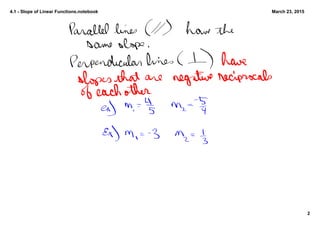 4.1 - Slope of Linear Functions.notebook March 23, 2015
Parallel lines (//) have the
same slope.
Perpendicular lines (⊥) have
slopes that are negative reciprocals
of each other
ex) m₁ = 4/5 m₂ = -5/4
Ex) m₁ = -3 m₂ = 1/3
2